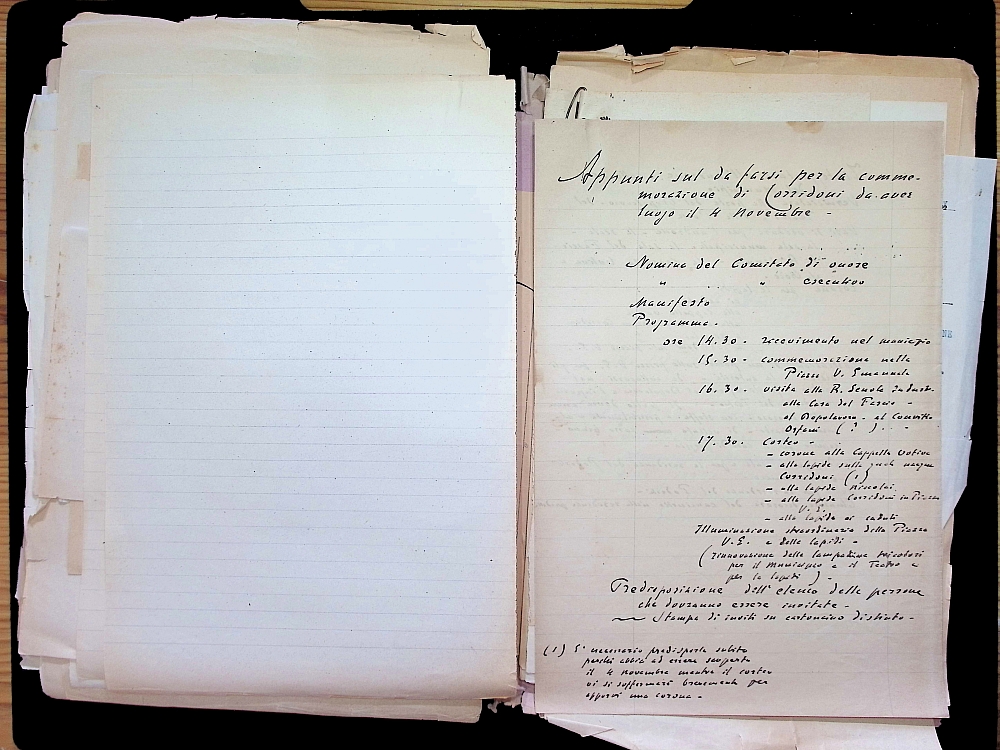 Appunti sul da farsi per la comme-
morazione di Corridoni da aver
luogo il 4 Novembre -
Nomina del Comitato di onore
" " esecutivo
Manifesto
Programma.
ore 14.30 - ricevimento nel municipio
15.30 - commemorazione nella
Piazza V. Emanuele
16.30 - visita alla R. Scuola Industr.
alla Casa del Fascio -
al Dopolavoro - al Convitto
Orfani (?) -
17.30. Corteo -
- corone alla Cappella Votiva
- alla lapide sulla quale nacque
Corridoni (1)
- alla lapide Niccolai
- alla lapide Corridoni in Piazza
V. E.
- alla lapide ai caduti
Illuminazione straordinaria della Piazza
V. E. e delle lapidi -
(rinnovazione delle lampadine tricolori
per il Municipio e il Teatro e
per le lapidi) -
Predisposizione dell'elenco delle persone
che dovranno essere invitate -
Stampa di inviti su cartoncino distinto -
(1) E' necessario predisporla subito
perché abbia ad essere scoperta
il 4 novembre mentre il corteo
vi si soffermerà brevemente per
apporvi una corona -